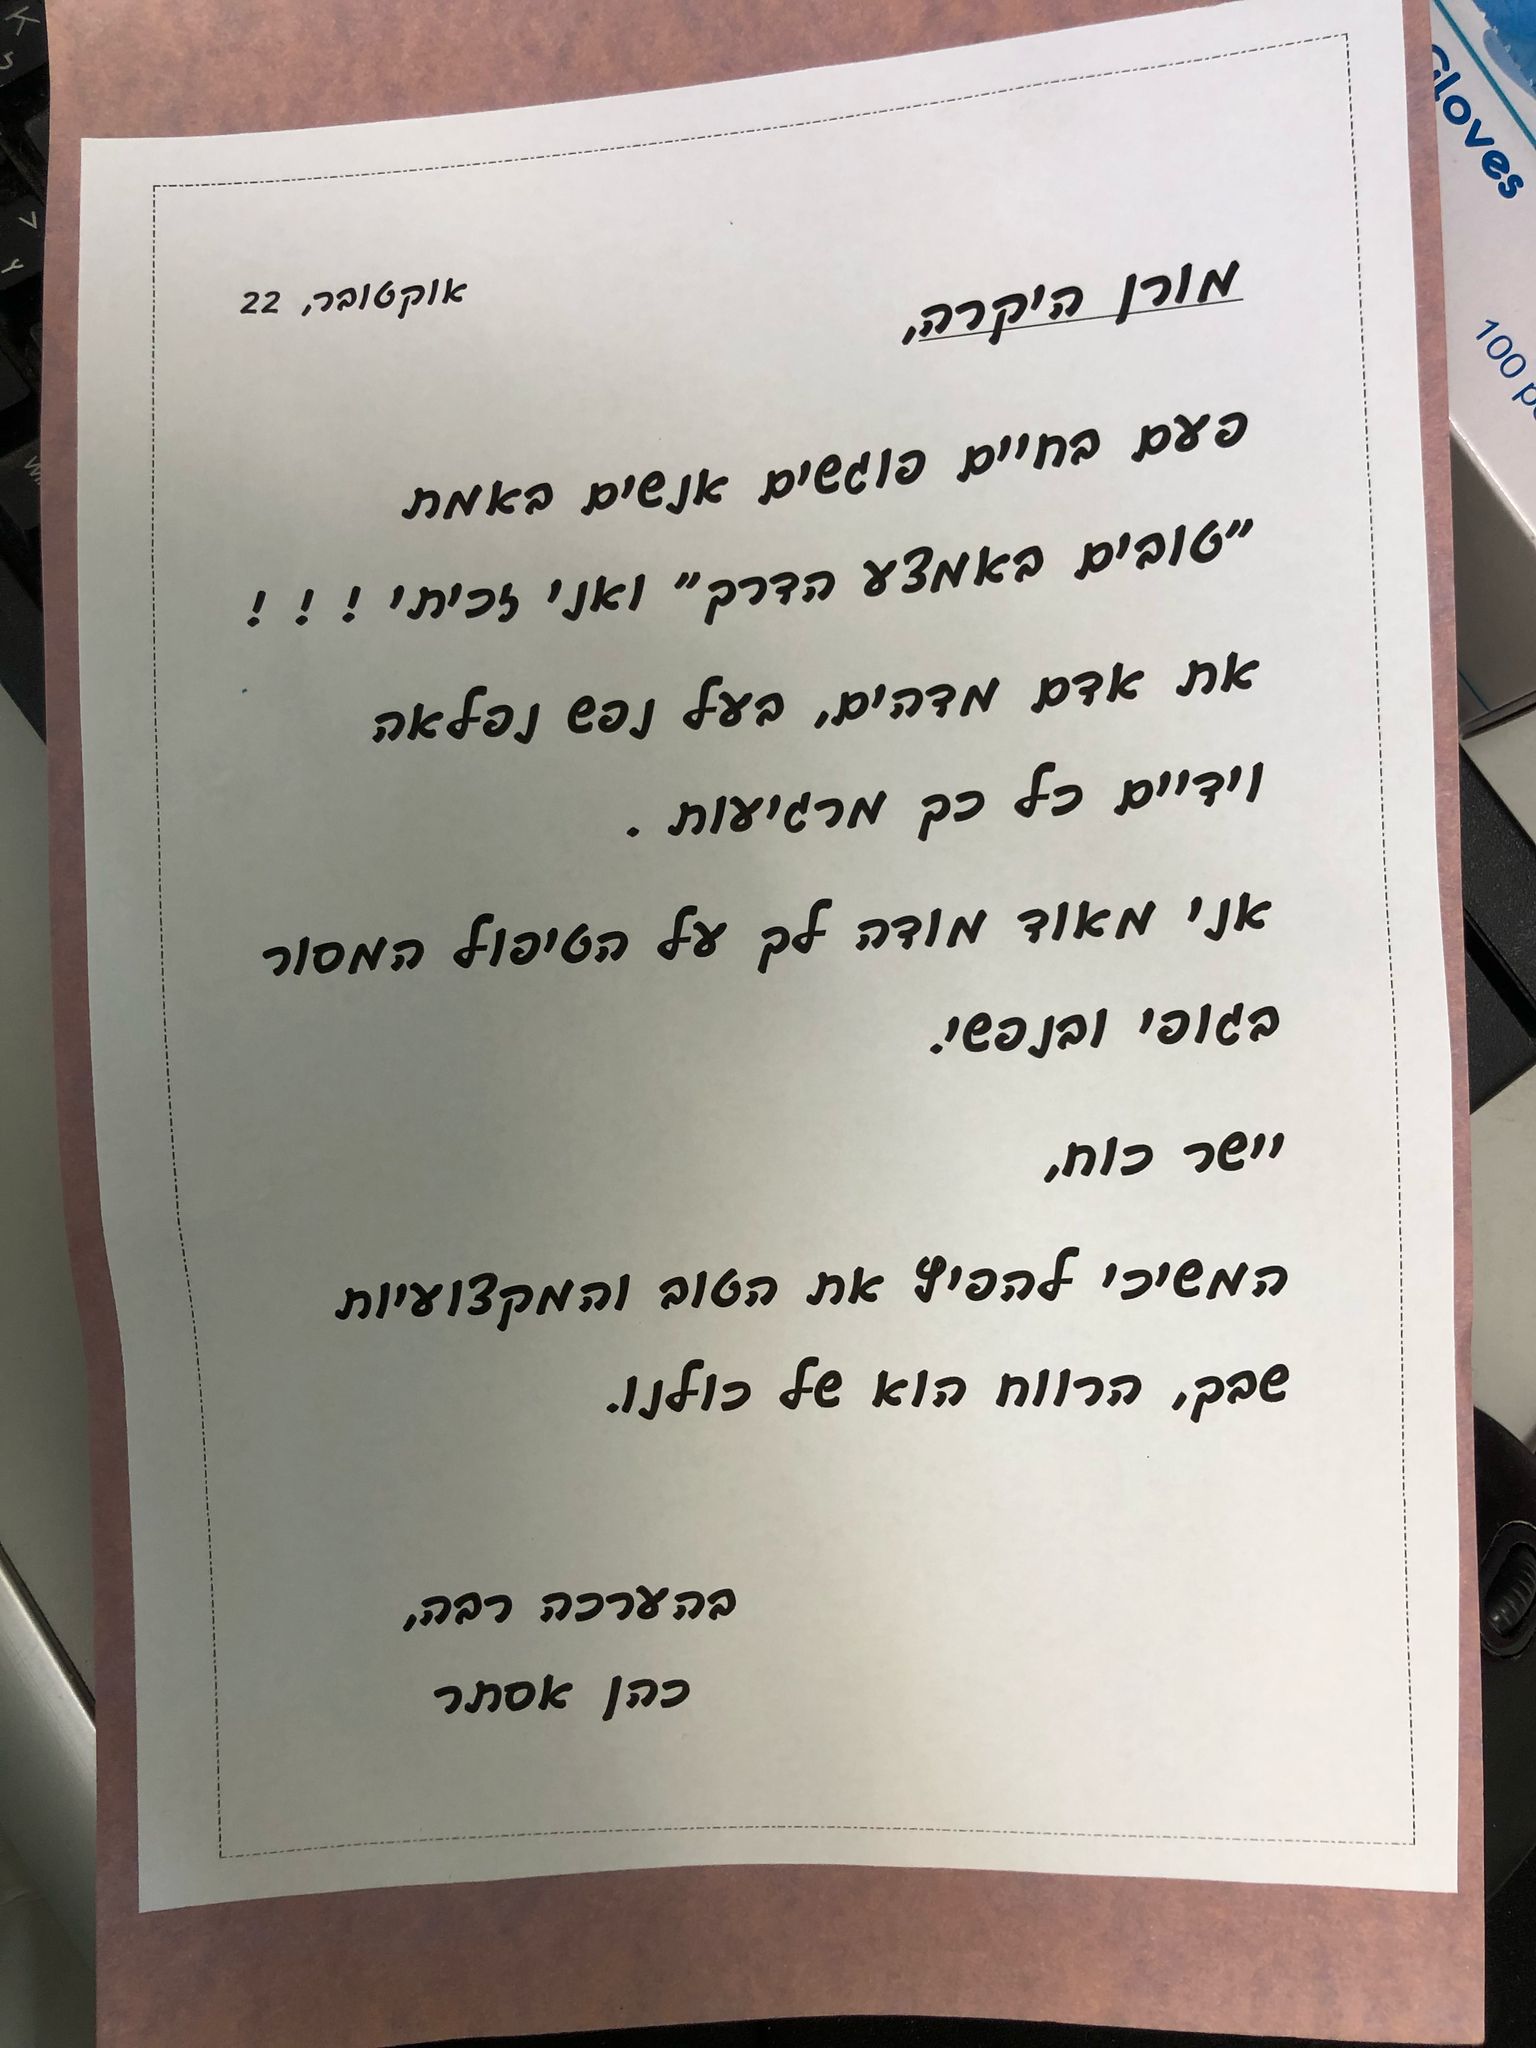 מורן היקרה,
אוקטובר, 22
פעם בחיים פוגשים אנשים באמת
"טובים באמצע הדרך" ואני זכיתי ! ! !
את אדם מדהים, בעל נפש נפלאה
וידיים כל כך מרגיעות .
אני מאוד מודה לך על הטיפול המסור
בגופי ובנפשי.
יישר כוח,
המשיכי להפיץ את הטוב והמקצועיות
שבך, הרווח הוא של כולנו.
בהערכה רבה,
כהן אסתר
Gloves
100